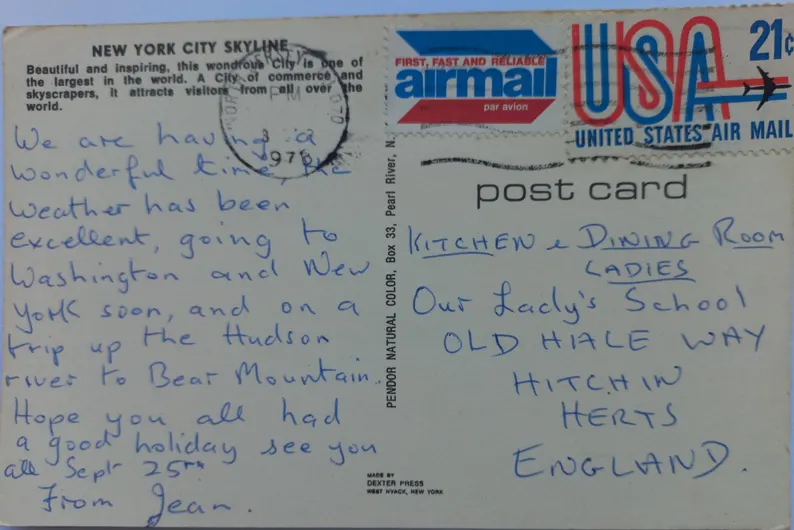 NEW YORK CITY SKYLINE
Beautiful and inspiring, this wondrous City is one of
the largest in the world. A City of commerce and
skyscrapers, it attracts visitors from all over the
world.
We are having a
wonderful time, the
weather has been
excellent, going to
Washington and New
York soon, and on a
trip up the Hudson
river to Bear Mountain.
Hope you all had
a good holiday see you
all Sept 25th
From Jean.
PM
1975
PENDOR NATURAL COLOR, Box 33, Pearl River, N.
MADE BY
DEXTER PRESS
WEST NYACK, NEW YORK
FIRST, FAST AND RELIABLE
airmail
par avion
USA 21c
UNITED STATES AIR MAIL
post card
KITCHEN & DINING ROOM
LADIES
Our Lady's School
OLD HIALE WAY
HITCHIN
HERTS
ENGLAND.